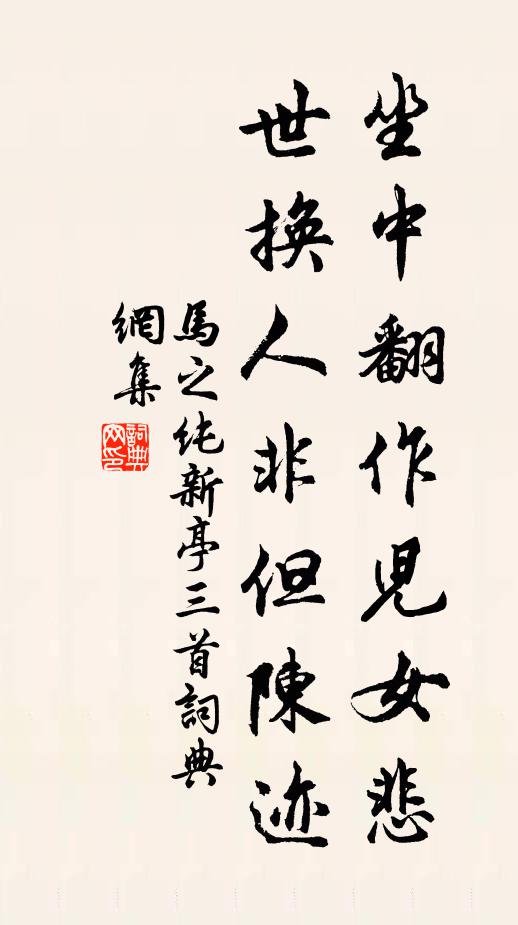 坐中翻作児女悲
世換人非但陳迹
馬之純新亭三首詞典
網集
詞典
网印